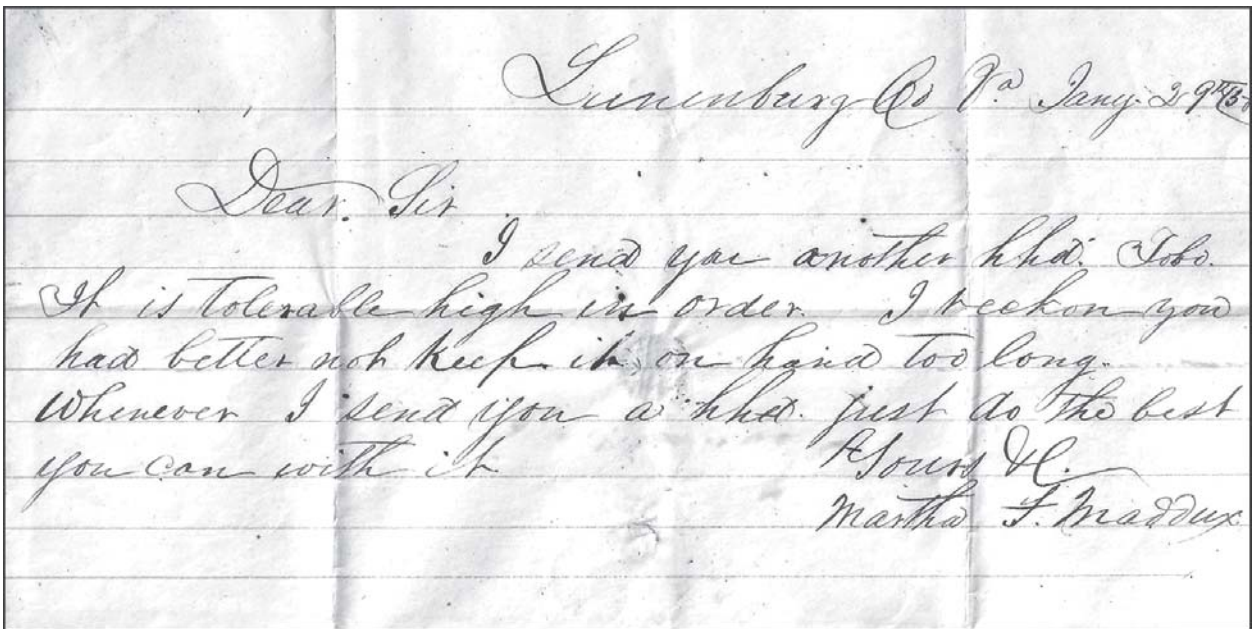 Lunenburg Co Va Jany. 29th
Dear. Sir
I send you another hhd. Tobo.
It is tolerable high in order. I reckon you
had better not keep it on hand too long.
Whenever I send you a hhd. just do the best
you can with it
Yours &C.
Martha F. Maddux